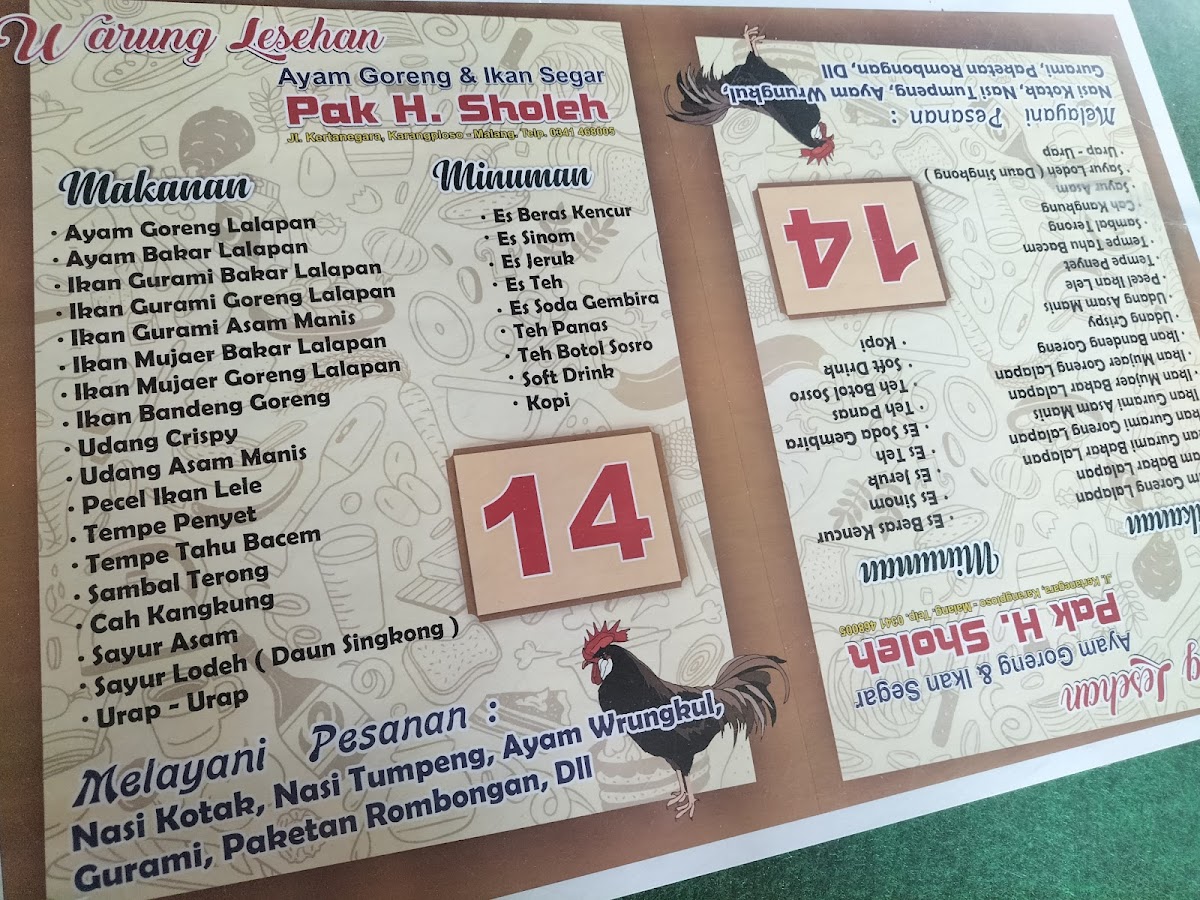 Warung Lesehan
Ayam Goreng & Ikan Segar
Pak H. Sholeh
Jl. Kertanegara, Karangploso - Malang. Telp. 0341 468005
Makanan
· Ayam Goreng Lalapan
· Ayam Bakar Lalapan
· Ikan Gurami Bakar Lalapan
· Ikan Gurami Goreng Lalapan
· Ikan Gurami Asam Manis
· Ikan Mujaer Bakar Lalapan
· Ikan Mujaer Goreng Lalapan
· Ikan Bandeng Goreng
· Udang Crispy
· Udang Asam Manis
· Pecel Ikan Lele
· Tempe Penyet
· Tempe Tahu Bacem
· Sambal Terong
· Cah Kangkung
· Sayur Asam
· Sayur Lodeh ( Daun Singkong )
· Urap - Urap
Minuman
· Es Beras Kencur
· Es Sinom
· Es Jeruk
· Es Teh
· Es Soda Gembira
· Teh Panas
· Teh Botol Sosro
· Soft Drink
· Kopi
14
Melayani Pesanan :
Nasi Kotak, Nasi Tumpeng, Ayam Wrungkul,
Gurami, Paketan Rombongan, Dll
Lesehan
Ayam Goreng & Ikan Segar
Pak H. Sholeh
Jl. Kertanegara, Karangploso - Malang. Telp. 0341 468005
Goreng Lalapan
Bakar Lalapan
Gurami Bakar Lalapan
Gurami Goreng Lalapan
Ikan Gurami Asam Manis
Ikan Mujaer Bakar Lalapan
· Ikan Mujaer Goreng Lalapan
· Ikan Bandeng Goreng
· Udang Crispy
· Udang Asam Manis
· Pecel Ikan Lele
· Tempe Penyet
· Tempe Tahu Bacem
· Sambal Terong
· Cah Kangkung
· Sayur Asam
· Sayur Lodeh ( Daun Singkong )
· Urap - Urap
Minuman
· Es Beras Kencur
· Es Sinom
· Es Jeruk
· Es Teh
· Es Soda Gembira
· Teh Panas
· Teh Botol Sosro
· Soft Drink
· Kopi
14
Melayani Pesanan :
Nasi Kotak, Nasi Tumpeng, Ayam Wrungkul,
Gurami, Paketan Rombongan, Dll